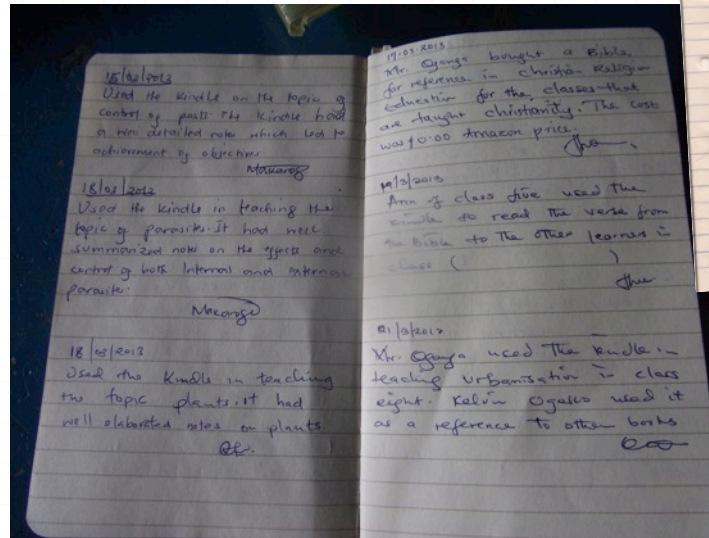 15/03/2013
Used the Kindle on the topic of
control of pests. The Kindle had
a well detailed notes which led to
achievement of objectives
18/03/2013
Used the Kindle in teaching the
topic of parasites. It had well
summarized notes on the effects and
control of both Internal and external
parasites.
18/03/2013
Used the Kindle in teaching
the topic plants. it had
well elaborated notes on plants
19-03-2013
Mr. Oganga bought a Bible
for reference in Christian Religion
Education for the classes that
are taught christianity. The cost
was $0.00 Amazon price.
19/3/2013
Ann of class five used the
kindle to read the verse from
the Bible to the other learners in
class ( )
21/3/2013
Mr. Oganga used the kindle in
teaching urbanisation in class
eight. Kelvin used it
as a reference to other books